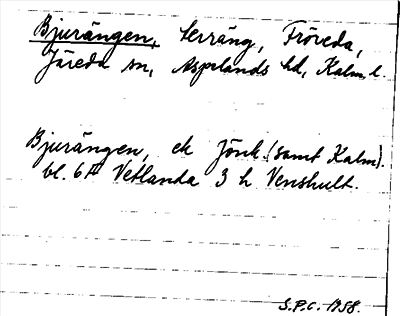 Bjurängen, terräng, Fröreda,
Järeda sn, Asprlands hd, Kalm. l.
Bjurängen, ek Jönk. (samt Kalm).
bl. 6F Vetlanda 3 h Venshult.
S.P.C. 1958.